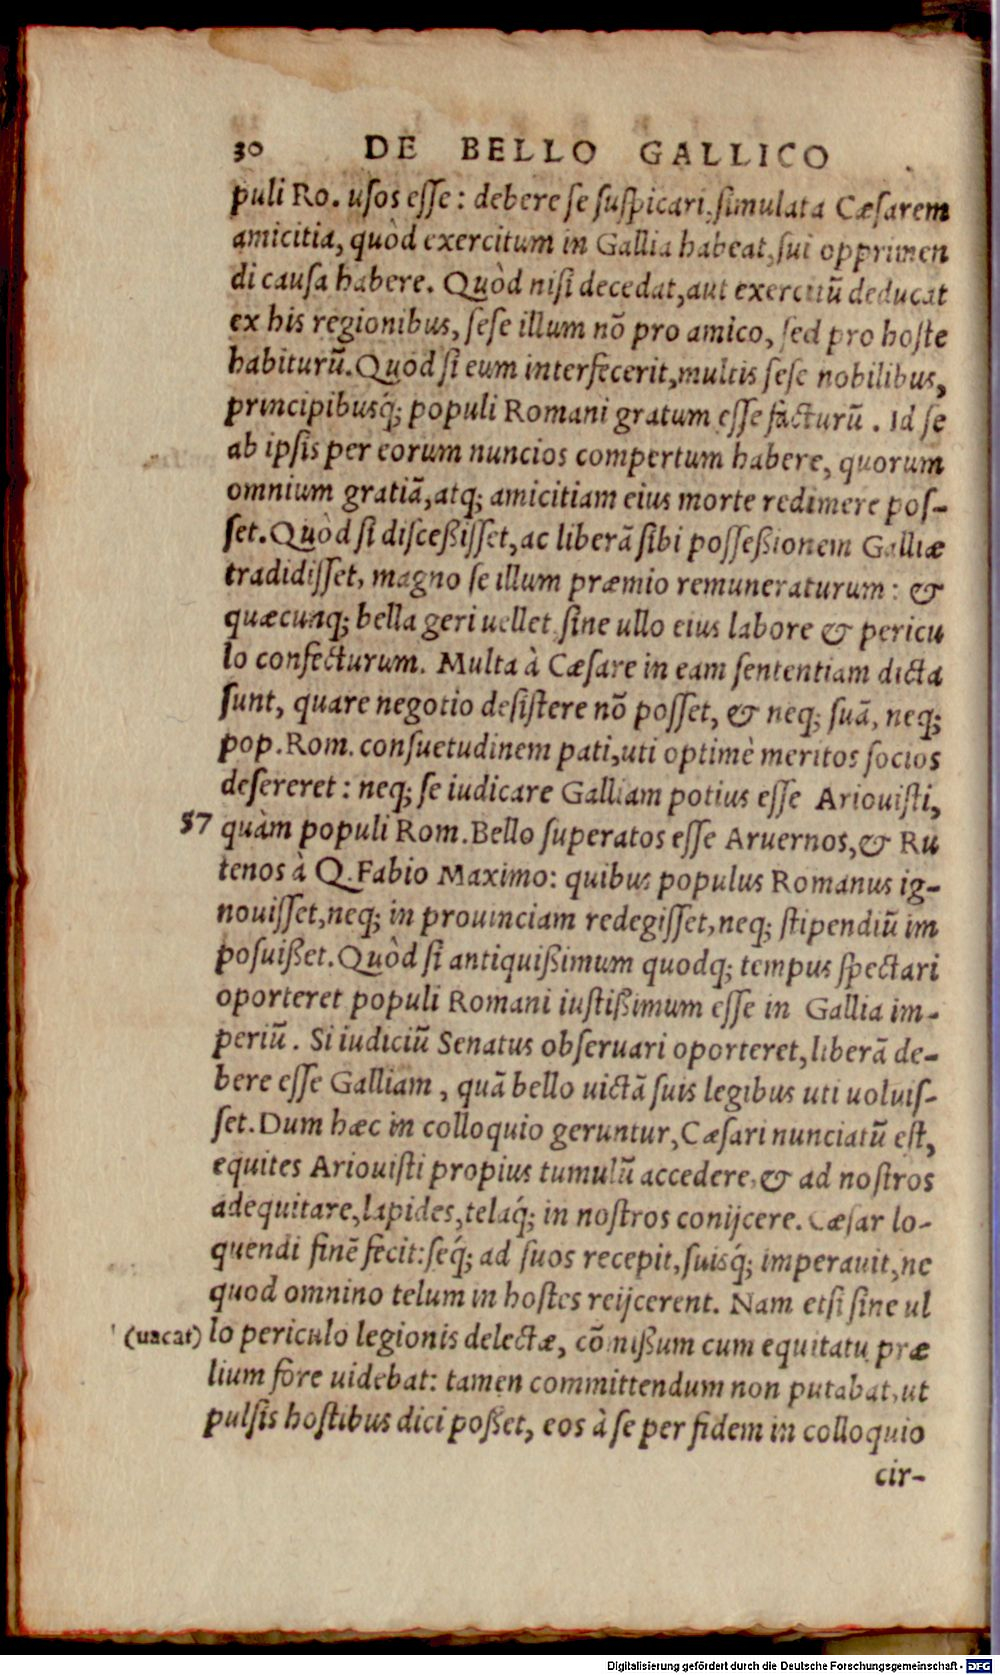 30 DE BELLO GALLICO
puli Ro. uſos eſſe: debere ſe ſuſpicari, ſimulata Cæſarem
amicitia, quòd exercitum in Gallia habeat, ſui opprimen
di cauſa habere. Quòd niſi decedat, aut exercitũ deducat
ex his regionibus, ſeſe illum nõ pro amico, ſed pro hoſte
habiturũ. Quòd ſi eum interfecerit, multis ſeſe nobilibus,
principibusq́; populi Romani gratum eſſe facturũ. Id ſe
ab ipſis per eorum nuncios compertum habere, quorum
omnium gratiã, atq; amicitiam eius morte redimere poſ-
ſet. Quòd ſi diſceßiſſet, ac liberã ſibi poſſeßionem Galliæ
tradidiſſet, magno ſe illum præmio remuneraturum: &
quæcunq; bella geri uellet ſine ullo eius labore & pericu
lo confecturum. Multa à Cæſare in eam ſententiam dicta
ſunt, quare negotio deſiſtere nõ poſſet, & neq; ſuã, neq;
pop. Rom. conſuetudinem pati, uti optimè meritos ſocios
deſereret: neq; ſe iudicare Galliam potius eſſe Ariouiſti,
57 quàm populi Rom. Bello ſuperatos eſſe Aruernos, & Ru
tenos à Q. Fabio Maximo: quibus populus Romanus ig-
nouiſſet, neq; in prouinciam redegiſſet, neq; ſtipendiũ im
poſuißet. Quòd ſi antiquißimum quodq; tempus ſpectari
oporteret populi Romani iuſtißimum eſſe in Gallia im-
periũ. Si iudiciũ Senatus obſeruari oporteret, liberã de-
bere eſſe Galliam, quã bello uictã ſuis legibus uti uoluiſ-
ſet. Dum hæc in colloquio geruntur, Cæſari nunciatũ eſt,
equites Ariouiſti propius tumulũ accedere, & ad noſtros
adequitare, lapides, telaq́; in noſtros conijcere. Cæſar lo-
quendi finẽ fecit: ſeq́; ad ſuos recepit, ſuisq́; imperauit, ne
quod omnino telum in hoſtes reijcerent. Nam etſi ſine ul
(uacat) lo periculo legionis delectæ, cõmißum cum equitatu præ
lium fore uidebat: tamen committendum non putabat, ut
pulſis hoſtibus dici poßet, eos à ſe per fidem in colloquio
cir-
Digitalisierung gefördert durch die Deutsche Forschungsgemeinschaft - DFG